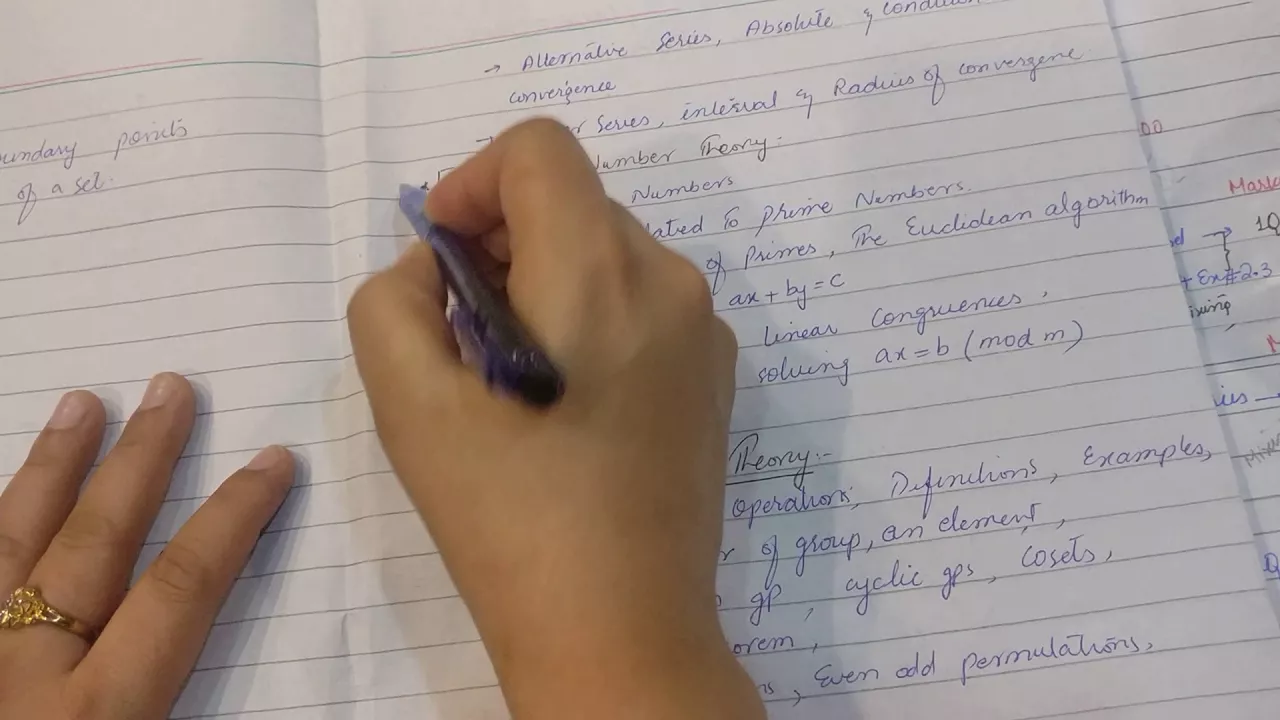 → Alternative Series, Absolute & condition
convergence
Series, interval & Radius of convergene
Number Theory:
Numbers
lated To prime Numbers.
of Primes, The Euclidean algorithm
ax + by = c
linear congruences,
solving ax = b (mod m)
Theory:-
operations, Definitions, Examples,
of group, an element,
gp, cyclic gps, cosets,
orem,
, Even odd permutations,
undary points
of a set.
00
ed → 1Q
+ Ex#2.3
ixing